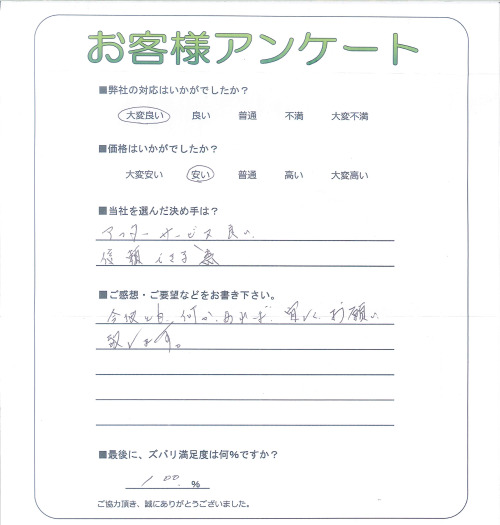 お客様アンケート
■弊社の対応はいかがでしたか？
大変良い 良い 普通 不満 大変不満
■価格はいかがでしたか？
大変安い 安い 普通 高い 大変高い
■当社を選んだ決め手は？
アフターサービス良い
信頼できる
■ご感想・ご要望などをお書き下さい。
今後とも何かあれば、宜しくお願い
致します。
■最後に、ズバリ満足度は何%ですか？
100 %
ご協力頂き、誠にありがとうございました。